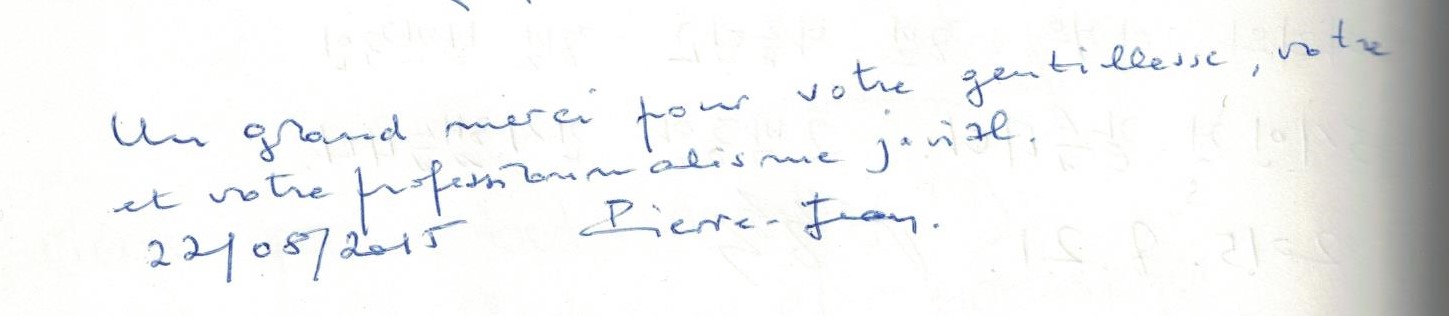 Un grand merci pour votre gentillesse, votre
et votre professionnalisme jovial.
22/08/2015 Pierre-Jean.